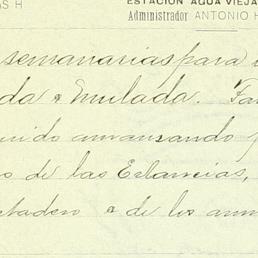 AS H
ESTACIÓN AGUA VIEJA
Administrador ANTONIO H
semanarias para
da a mulada. Fa
uido amansando
o de las Estancias,
tadero a de los